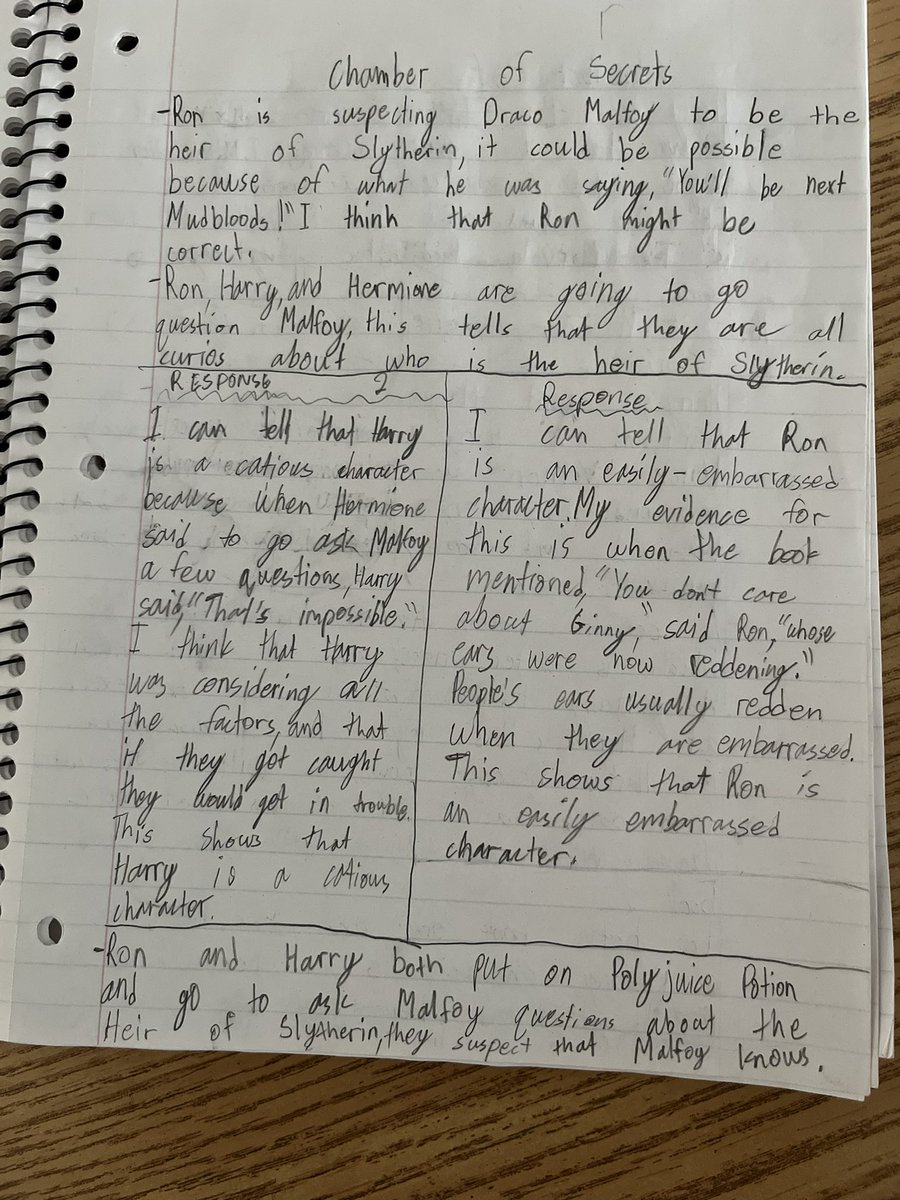 Chamber of Secrets
-Ron is suspecting Draco Malfoy to be the
heir of Slytherin, it could be possible
because of what he was saying, "You'll be next
Mudbloods!" I think that Ron might be
correct.
-Ron, Harry, and Hermione are going to go
question Malfoy, this tells that they are all
curios about who is the heir of Slytherin.
RESPONSE 2
I can tell that Harry
is a catious character
because when Hermione
said to go ask Malfoy
a few questions, Harry
said, "That's impossible."
I think that Harry
was considering all
the factors, and that
if they got caught
they would get in trouble.
This shows that
Harry is a catious
character.
Response
I can tell that Ron
is an easily-embarrassed
character. My evidence for
this is when the book
mentioned, "You don't care
about Ginny," said Ron, "whose
ears were now reddening."
People's ears usually redden
when they are embarrassed.
This shows that Ron is
an easily embarrassed
character.
-Ron and Harry both put on Polyjuice Potion
and go to ask Malfoy questions about the
Heir of Slytherin, they suspect that Malfoy knows.